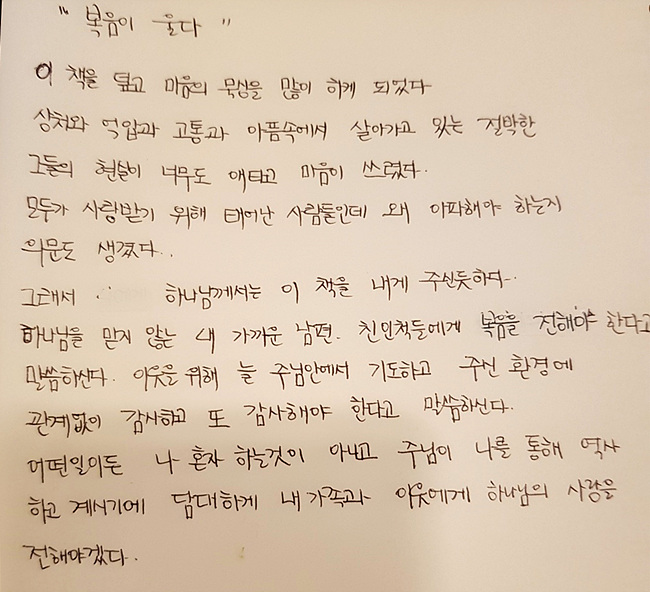 " 복음이 울다 "
이 책을 덮고 마음의 묵상을 많이 하게 되었다
상처와 억압과 고통과 아픔속에서 살아가고 있는 절박한
그들의 현실이 너무도 애타고 마음이 쓰렸다.
모두가 사랑받기 위해 태어난 사람들인데 왜 아파해야 하는지
의문도 생겼다..
그래서 .. 하나님께서는 이 책을 내게 주신듯하다..
하나님을 믿지 않는 내 가까운 남편. 친인척들에게 복음을 전해야 한다고
말씀하신다. 이웃을 위해 늘 주님안에서 기도하고 주신 환경에
관계없이 감사하고 또 감사해야 한다고 말씀하신다.
어떤일이든 나 혼자 하는것이 아니고 주님이 나를 통해 역사
하고 계시기에 담대하게 내 가족과 이웃에게 하나님의 사랑을
전해야겠다.